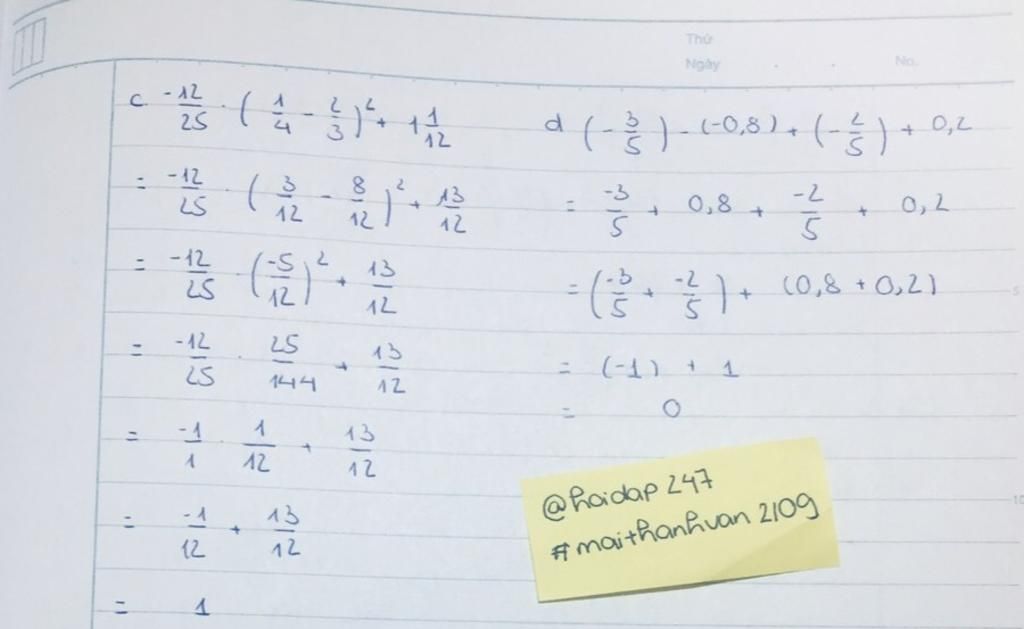 Thứ
Ngày
No.
c -12/25 · (1/4 - 2/3)² + 1 1/12
= -12/25 · (3/12 - 8/12)² + 13/12
= -12/25 · (-5/12)² + 13/12
= -12/25 · 25/144 + 13/12
= -1/1 · 1/12 + 13/12
= -1/12 + 13/12
= 1
d (-3/5) - (-0,8) + (-2/5) + 0,2
= -3/5 + 0,8 + -2/5 + 0,2
= (-3/5 + -2/5) + (0,8 + 0,2)
= (-1) + 1
= 0
@hoidap 247
#maithanhvan 2109
5
10